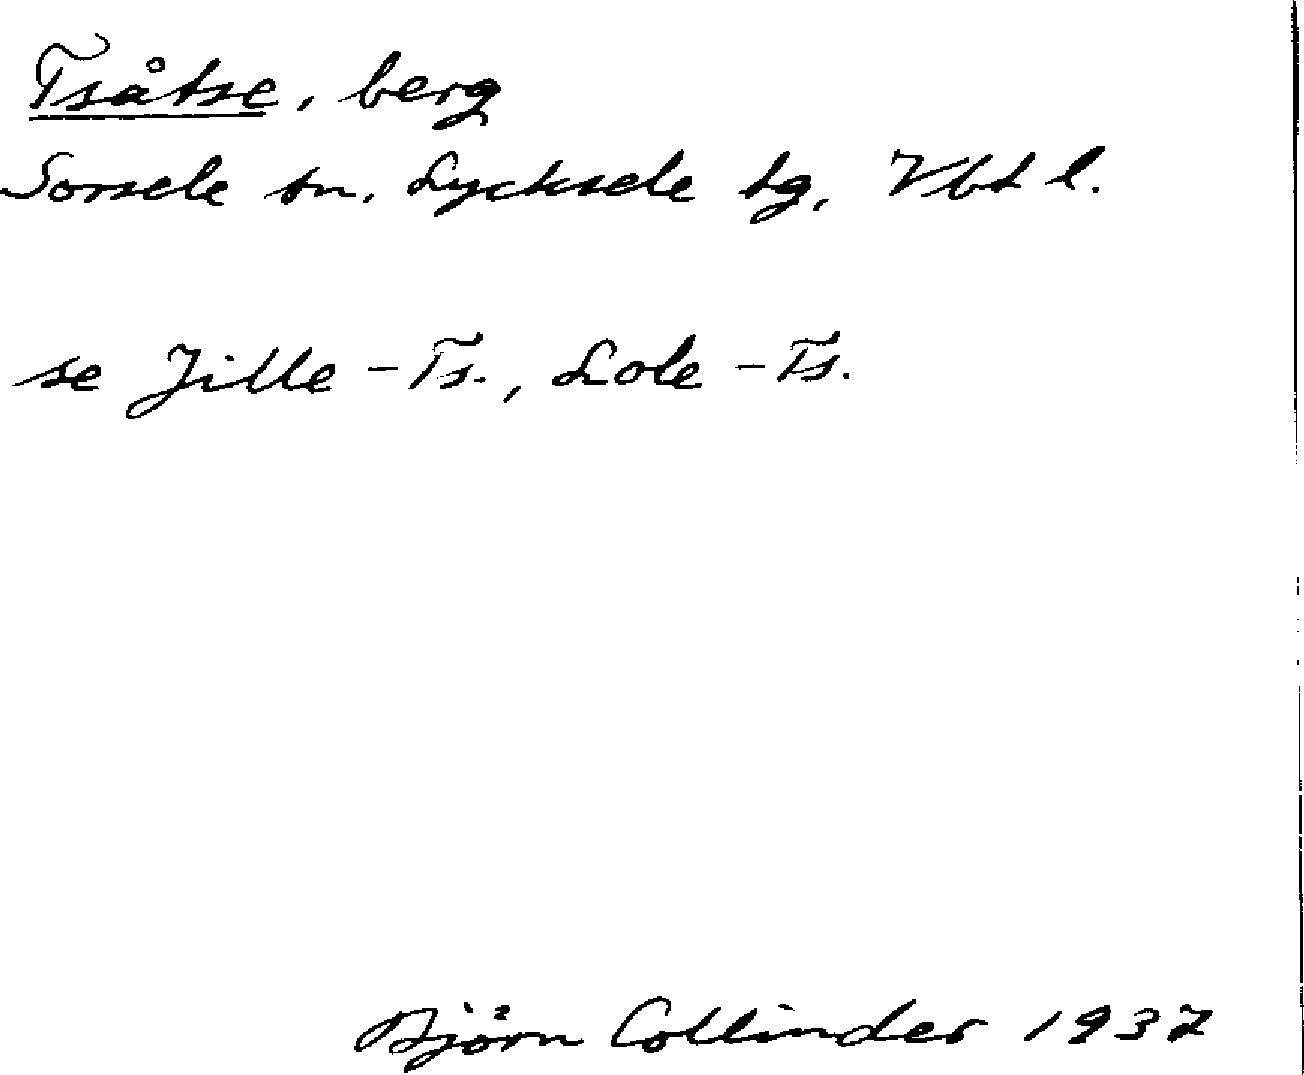 Tsåtse, berg
Sorsele sn, Lycksele tg, Vbt l.
se Jille-Ts., Lole-Ts.
Björn Collinder 1937